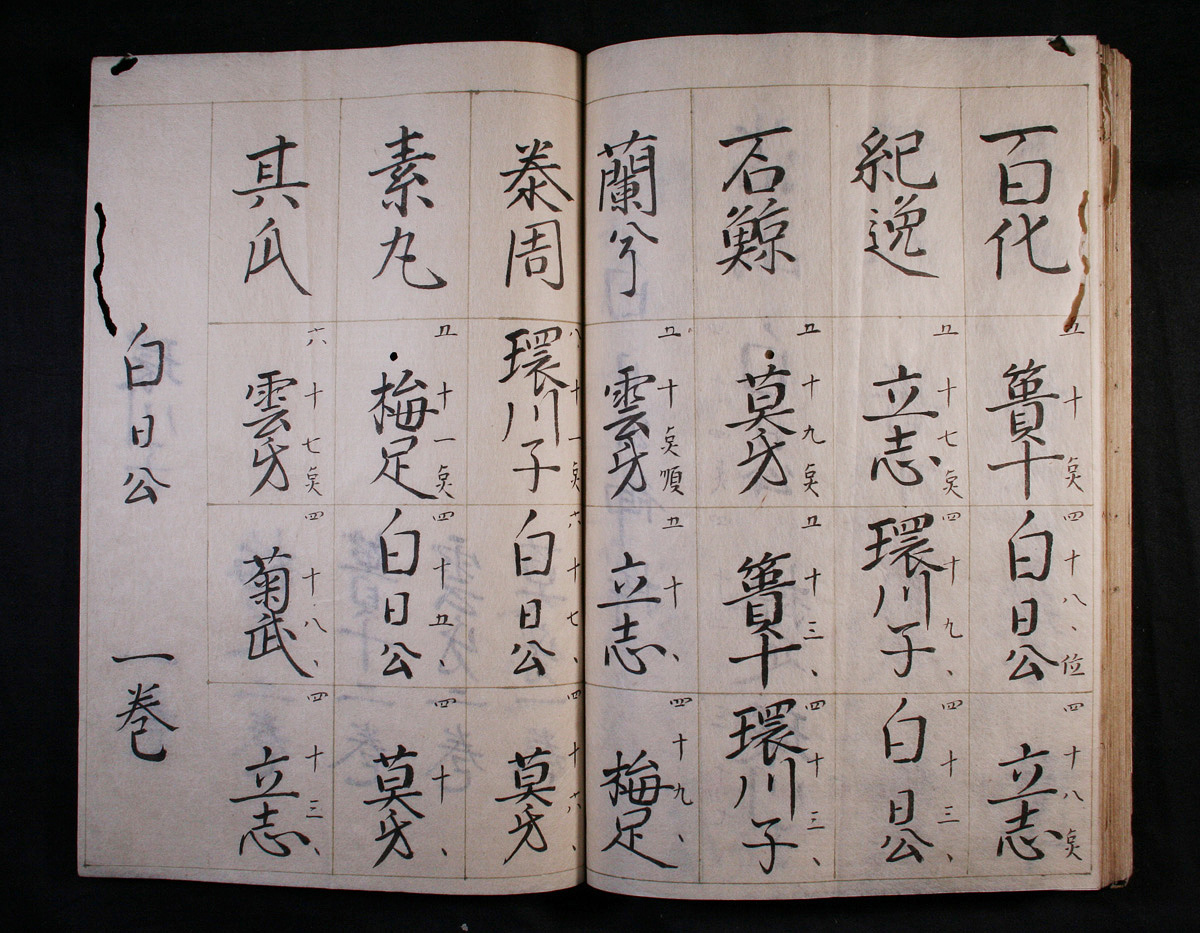 百代
五十点
簣十
四十八、位
白日公
四十八点
立志
紀逸
五十七点
立志
四十九、
環川子
四十三、
白日公
石鯨
五十九点
莫牙
五十三、
簣十
四十三、
環川子
蘭兮
五十点順
雲牙
五十、
立志
四十九、
梅足
泰周
八十一点
環川子
六十七、
白日公
四十六、
莫牙
素丸
五十一点
梅足
四十五、
白日公
四十、
莫牙
其瓜
六十七点
雲牙
四十八、
菊武
十三、
立志
白日公
一巻